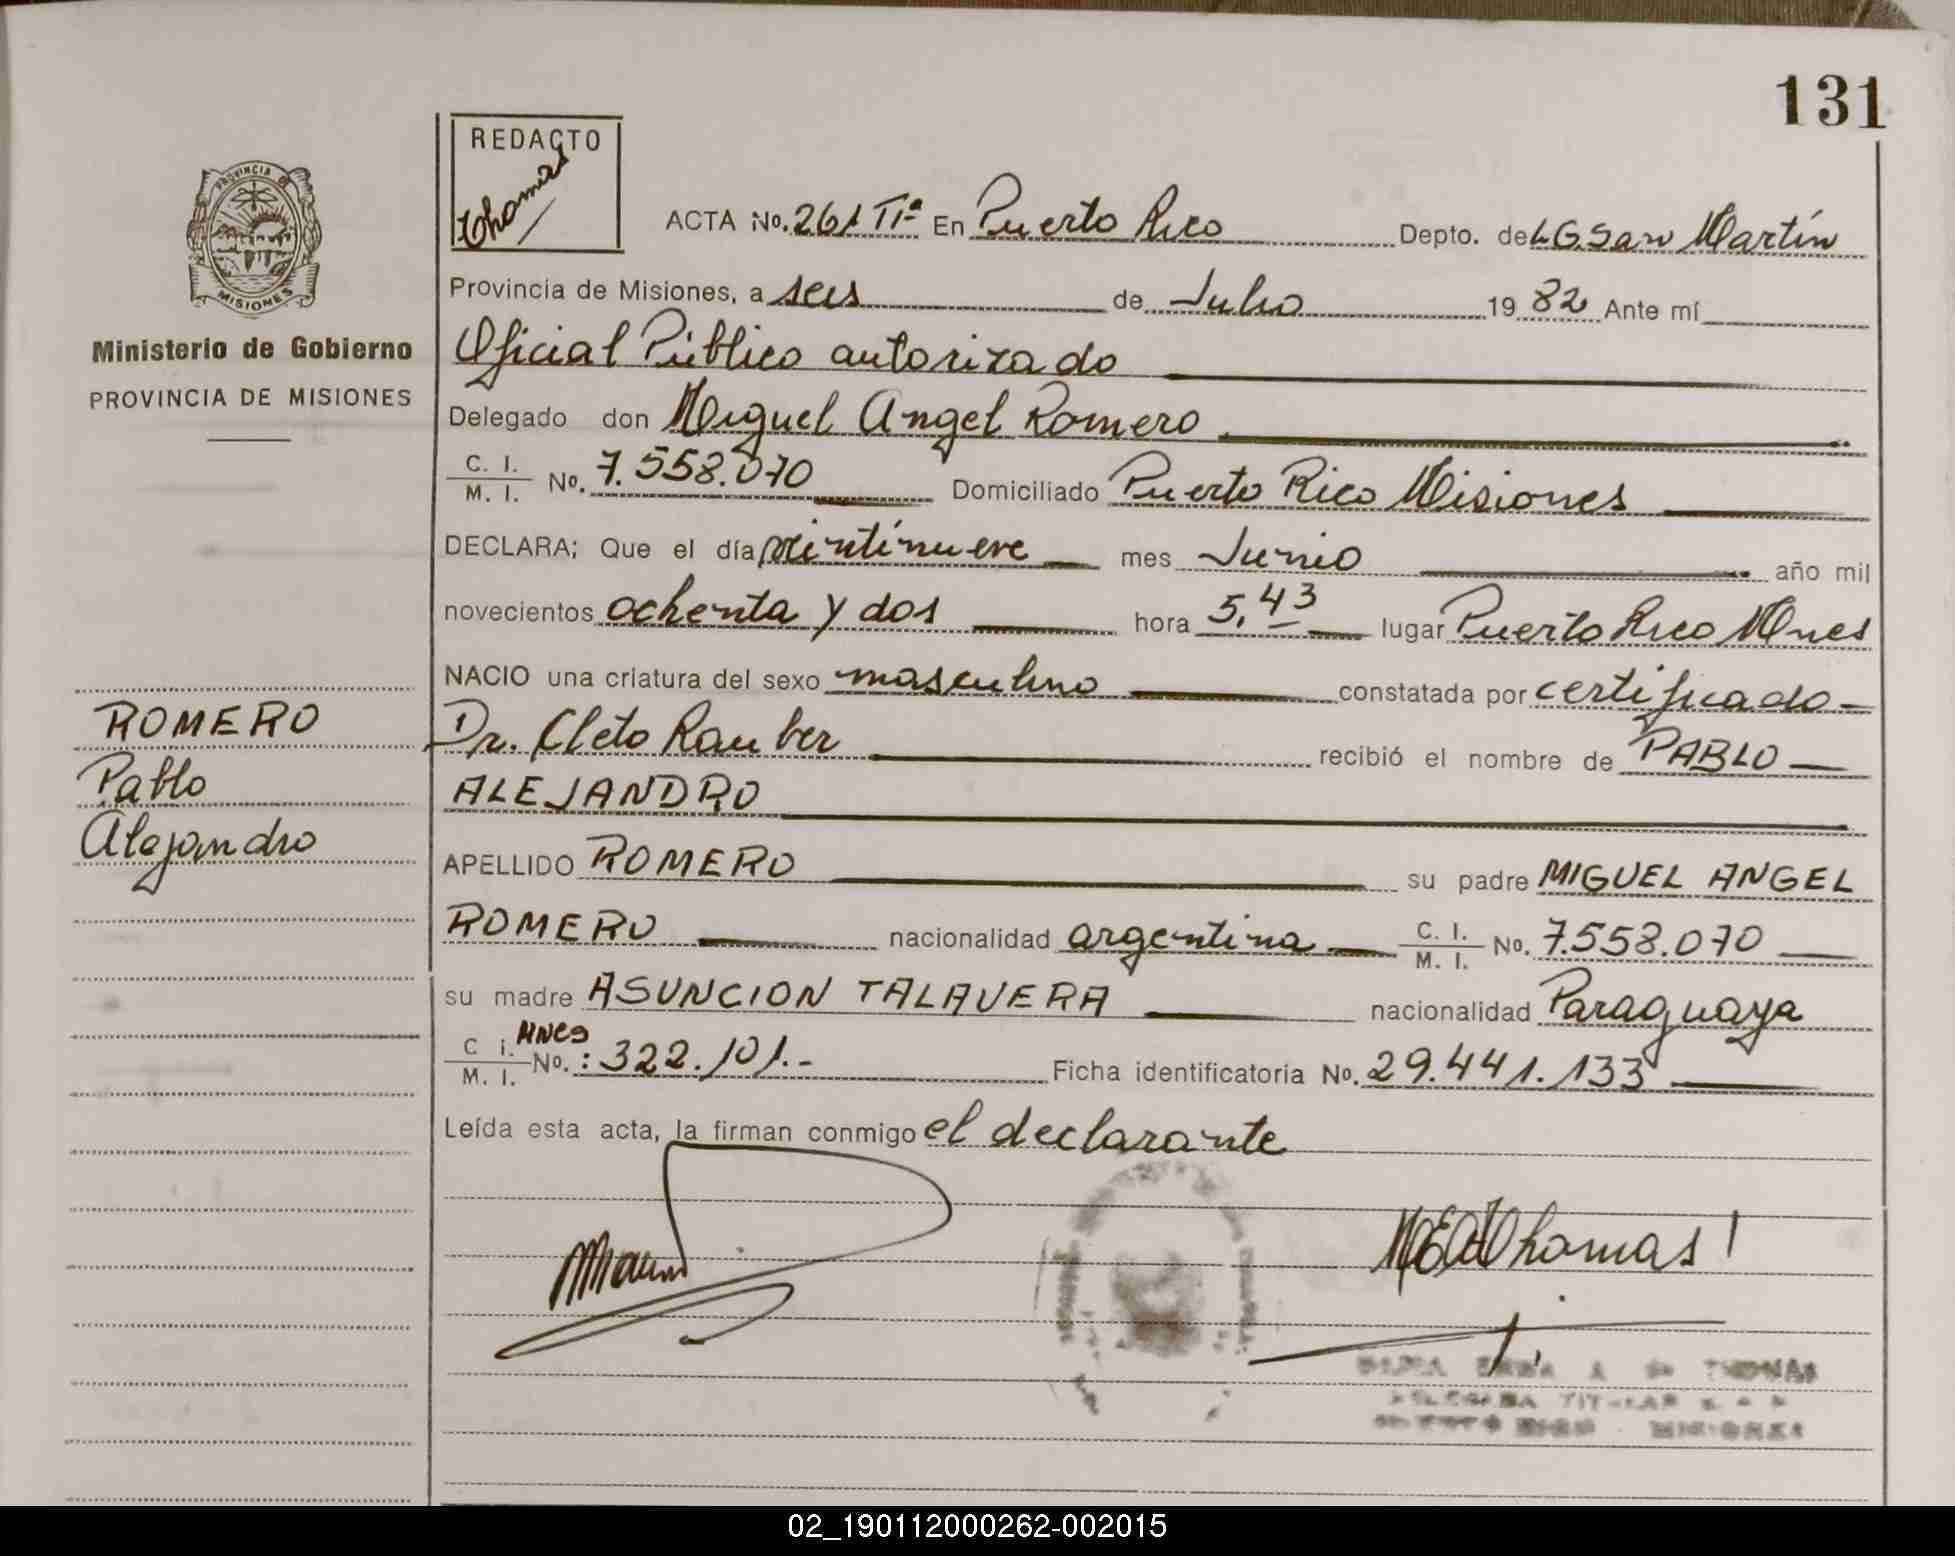 131
REDACTO
Thomas
PROVINCIA DE
MISIONES
Ministerio de Gobierno
PROVINCIA DE MISIONES
ACTA No. 261 Tº En Puerto Rico Depto. de L G. San Martín
Provincia de Misiones, a seis de Julio 1982 Ante mí
Oficial Público autorizado
Delegado don Miguel Angel Romero
C. I. / M. I. No. 7.558.070 Domiciliado Puerto Rico Misiones
DECLARA; Que el día veintinueve mes Junio año mil
novecientos ochenta y dos hora 5,43 lugar Puerto Rico Mnes
NACIO una criatura del sexo masculino constatada por certificado
Dr. Cleto Rauber recibió el nombre de PABLO
ALEJANDRO
APELLIDO ROMERO su padre MIGUEL ANGEL
ROMERO nacionalidad argentina C. I. / M. I. No. 7.558.070
su madre ASUNCION TALAVERA nacionalidad Paraguaya
C. I. / M. I. Mnes No.: 322.101.- Ficha identificatoria No. 29.441.133
Leída esta acta, la firman conmigo el declarante
ROMERO
Pablo
Alejandro
Thomas
THOMAS
DELEGADA TITULAR
PUERTO RICO - MISIONES
02_190112000262-002015